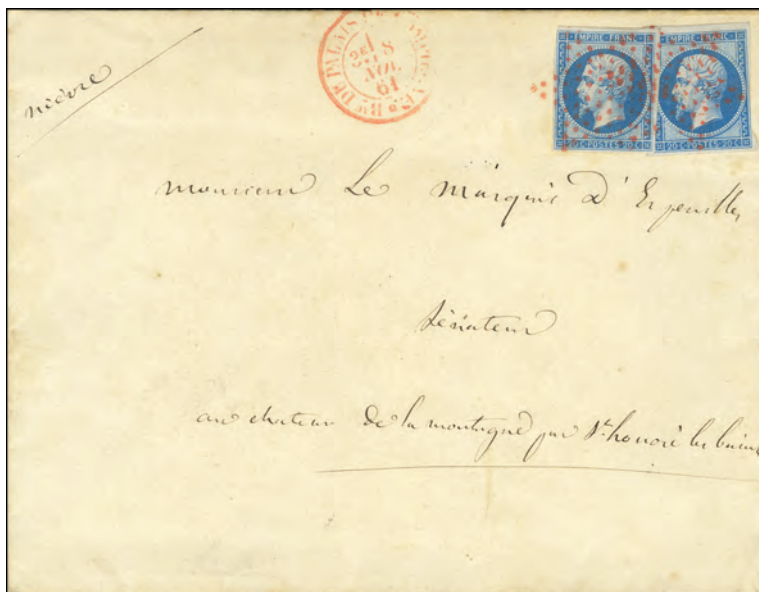 nièvre
Bau DE PALAIS DE
2E 8 NOV. 61
EMPIRE FRANC EMPIRE FRANC
20 C POSTES 20 C 20 C POSTES 20 C
monsieur Le marquis D'Espeuilles
sénateur
au chateau de la montagne par St. honoré les bains